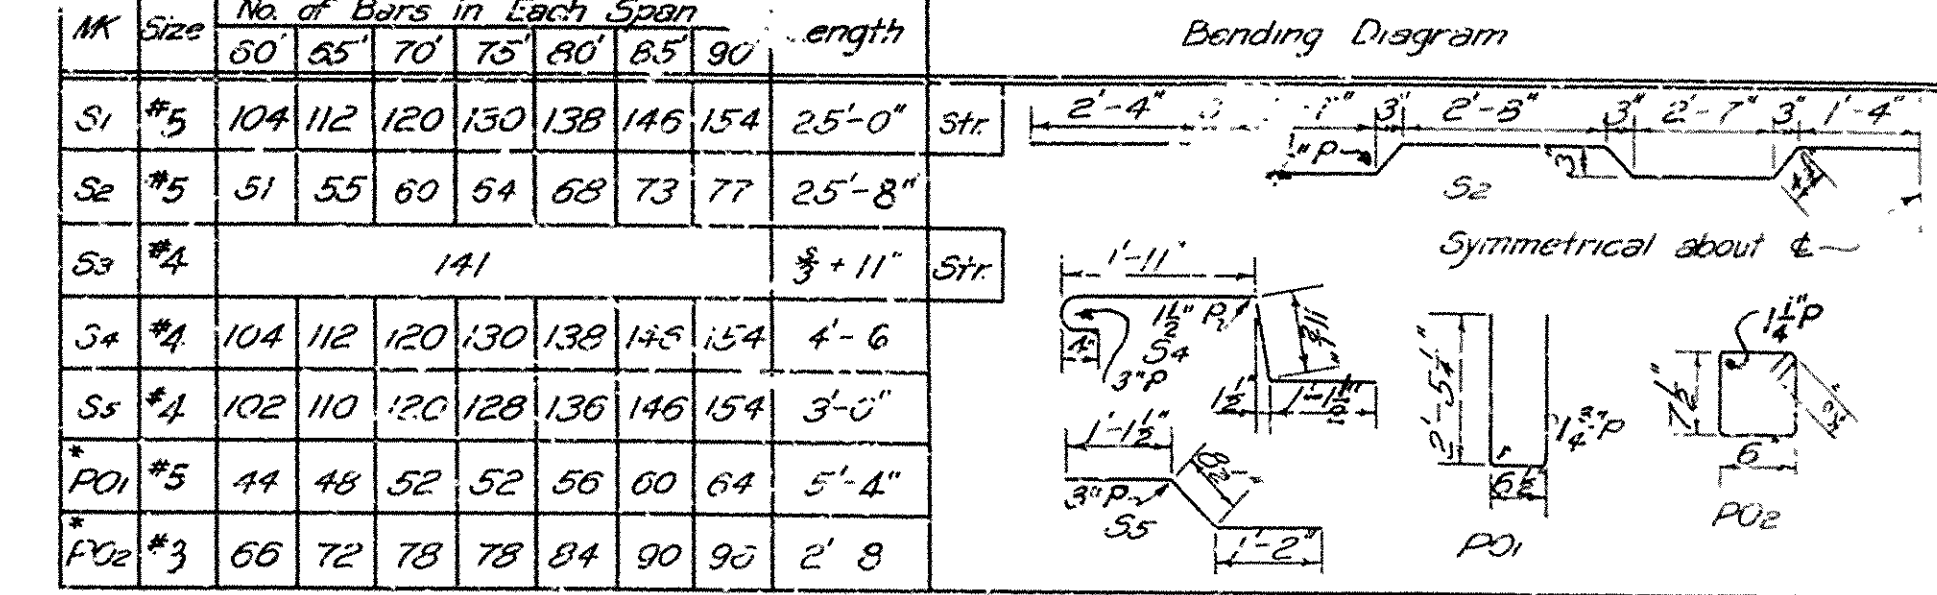 MK Size No. of Bars in Each Span ength Bending Diagram
60' 65' 70' 75' 80' 85' 90'
S1 #5 104 112 120 130 138 146 154 25'-0" Str.
S2 #5 51 55 60 64 68 73 77 25'-8"
S3 #4 141 S/3 + 11" Str.
S4 #4 104 112 120 130 138 146 154 4'-6
S5 #4 102 110 120 128 136 146 154 3'-0"
*PO1 #5 44 48 52 52 56 60 64 5'-4"
*PO2 #3 66 72 78 78 84 90 96 2' 8
2'-4" 3" 2'-8" 3" 2'-7" 3" 1'-4"
"P 3"
S2
Symmetrical about ℄
1'-11"
1½" P
4" S4
3"P
1½" 1'-1½"
1'-1½"
3" P
S5
1'-2"
2'-5¼"
6½"
PO1
1¼"P
7½"
6"
PO2